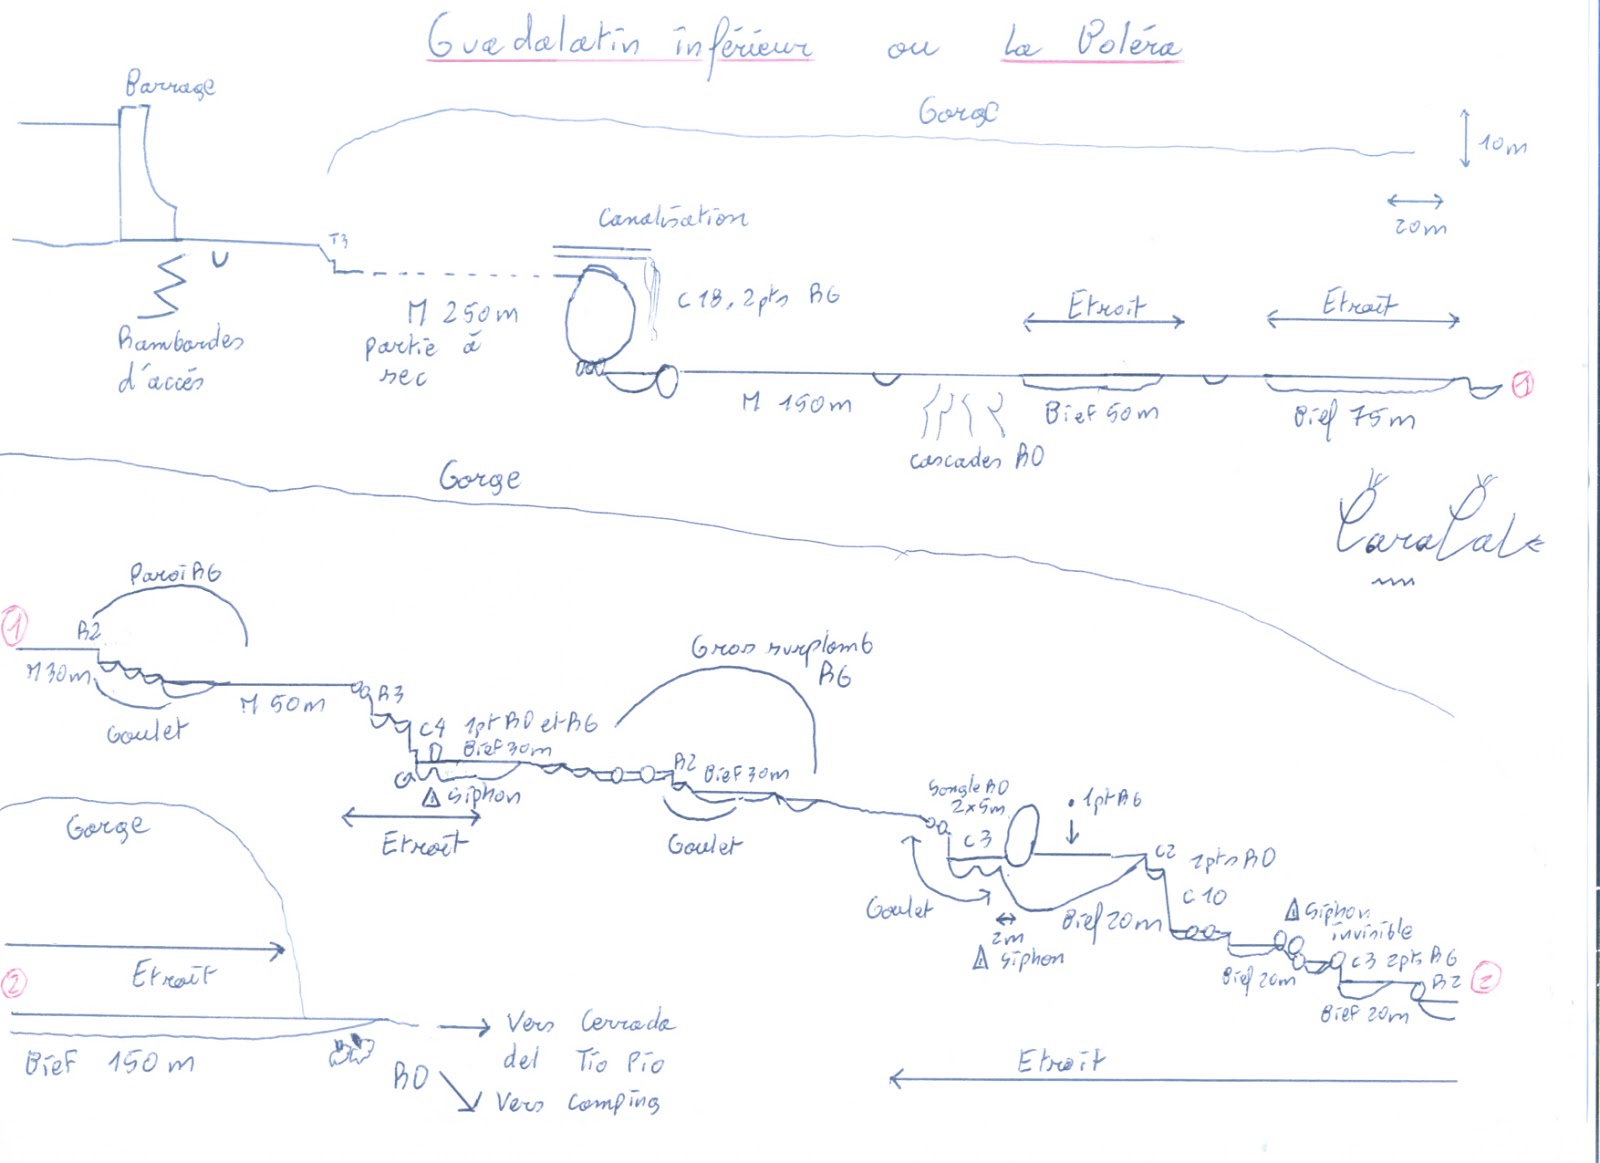 Guadalatin inférieur ou La Poléra
Barrage
Gorge
10m
20m
Canalisation
T3
M 250m
partie à
sec
C18, 2pts RG
Rambardes
d'accés
Etroit
Etroit
M 150m
Bief 50m
Bief 75m
1
cascades RD
Gorge
Paroi RG
1
R2
M 30m
Goulet
M 50m
R3
C4 1pt RD et RG
Bief 30m
⚠ Siphon
Etroit
Gros surplomb
RG
R2 Bief 30m
Goulet
Sangle RD
2x5m
C3
1pt RG
Goulet
2m
⚠ Siphon
Bief 20m
C2
2pts RD
C10
⚠ Siphon
invisible
Bief 20m
C3 2pts RG
R2
2
Bief 20m
Etroit
Gorge
Etroit
2
Bief 150m
RD
Vers Cerrada
del Tio Pio
Vers Camping